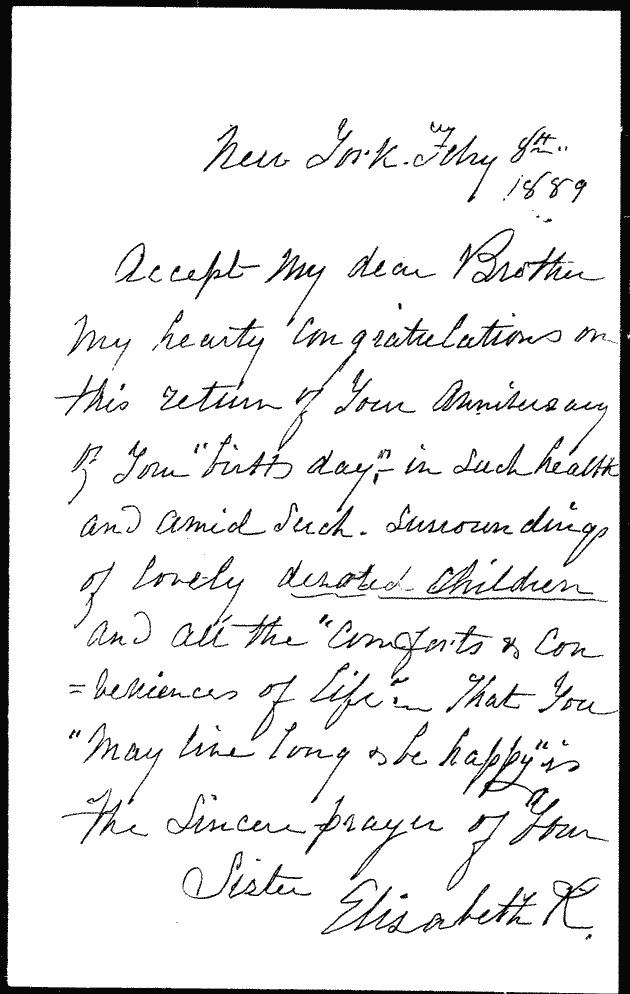 New York. Feby 8th
1889
Accept My dear Brother
My hearty Congratulations on
this return of Your Anniversary
of Your "birth day", in Such health
and amid Such. Surroundings
of lovely devoted Children
and all the "Comforts & Con
=veniences of Life" – That You
"May live long & be happy" is
The Sincere prayer of Your
Sister
Elisabeth K.